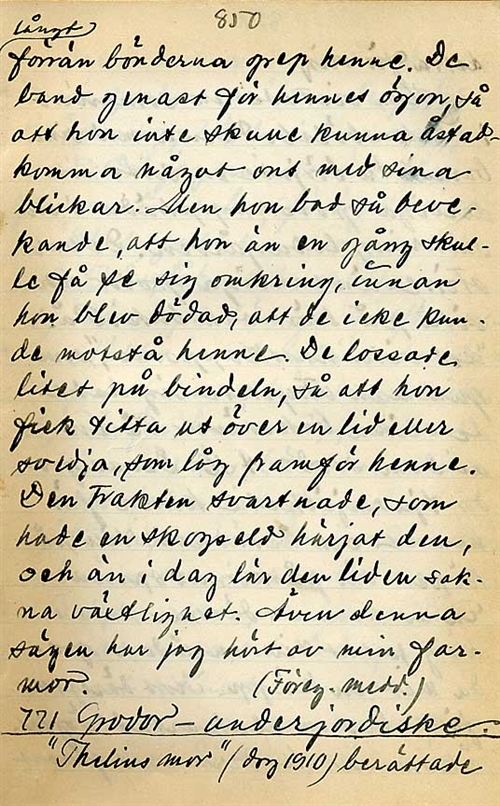 850
långt
förrän bönderna grep henne. De
band genast för hennes ögon, så
att hon inte skulle kunna åstad-
komma något ont med sina
blickar. Men hon bad så beve-
kande, att hon än en gång skul-
le få se sig omkring, innan
hon blev dödad, att de icke kun-
de motstå henne. De lossade
litet på bindeln, så att hon
fick titta ut över en lid eller
svedja, som låg framför henne.
Den trakten svartnade, som
hade en skogseld härjat den,
och än i dag lär den liden sak-
na växtlighet. Även denna
sägen har jag hört av min far-
mor. (Föreg. medd.)
771 Grodor – underjordiske.
"Thelins mor" (dog 1910) berättade